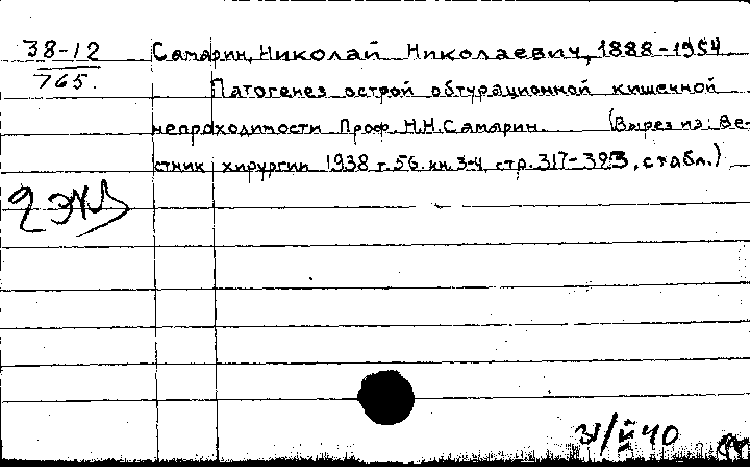 38-12
765.
Самарин, Николай Николаевич, 1888-1954
Патогенез острой обтурационной кишечной
непроходимости Проф. Н.Н.Самарин. (Вырез из: Ве-
стник хирургии 1938 т.56. кн.3-4, стр. 317-323, с табл.)
2 экз
31/ 40